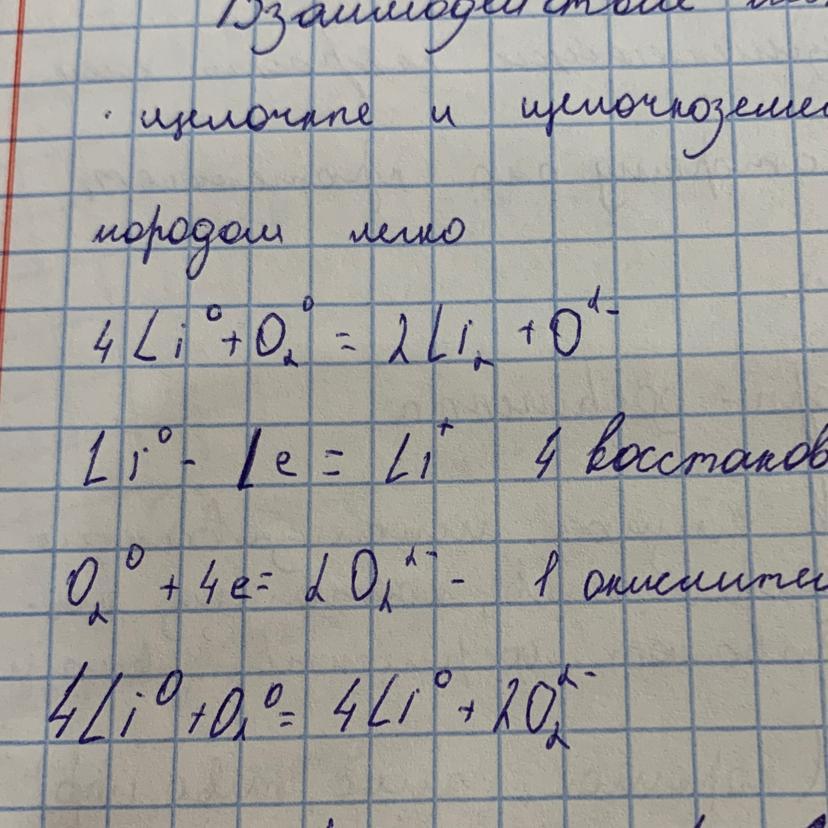 Взаимодействие
· щелочные и щелочноземел
лородом легко
4Li⁰ + O₂⁰ = 2Li₂ + O²⁻
Li⁰ - 1e = Li⁺ 4 восстанов
O₂⁰ + 4e = 2O₂²⁻ - 1 окислител
4Li⁰ + O₂⁰ = 4Li⁰ + 2O₂²⁻